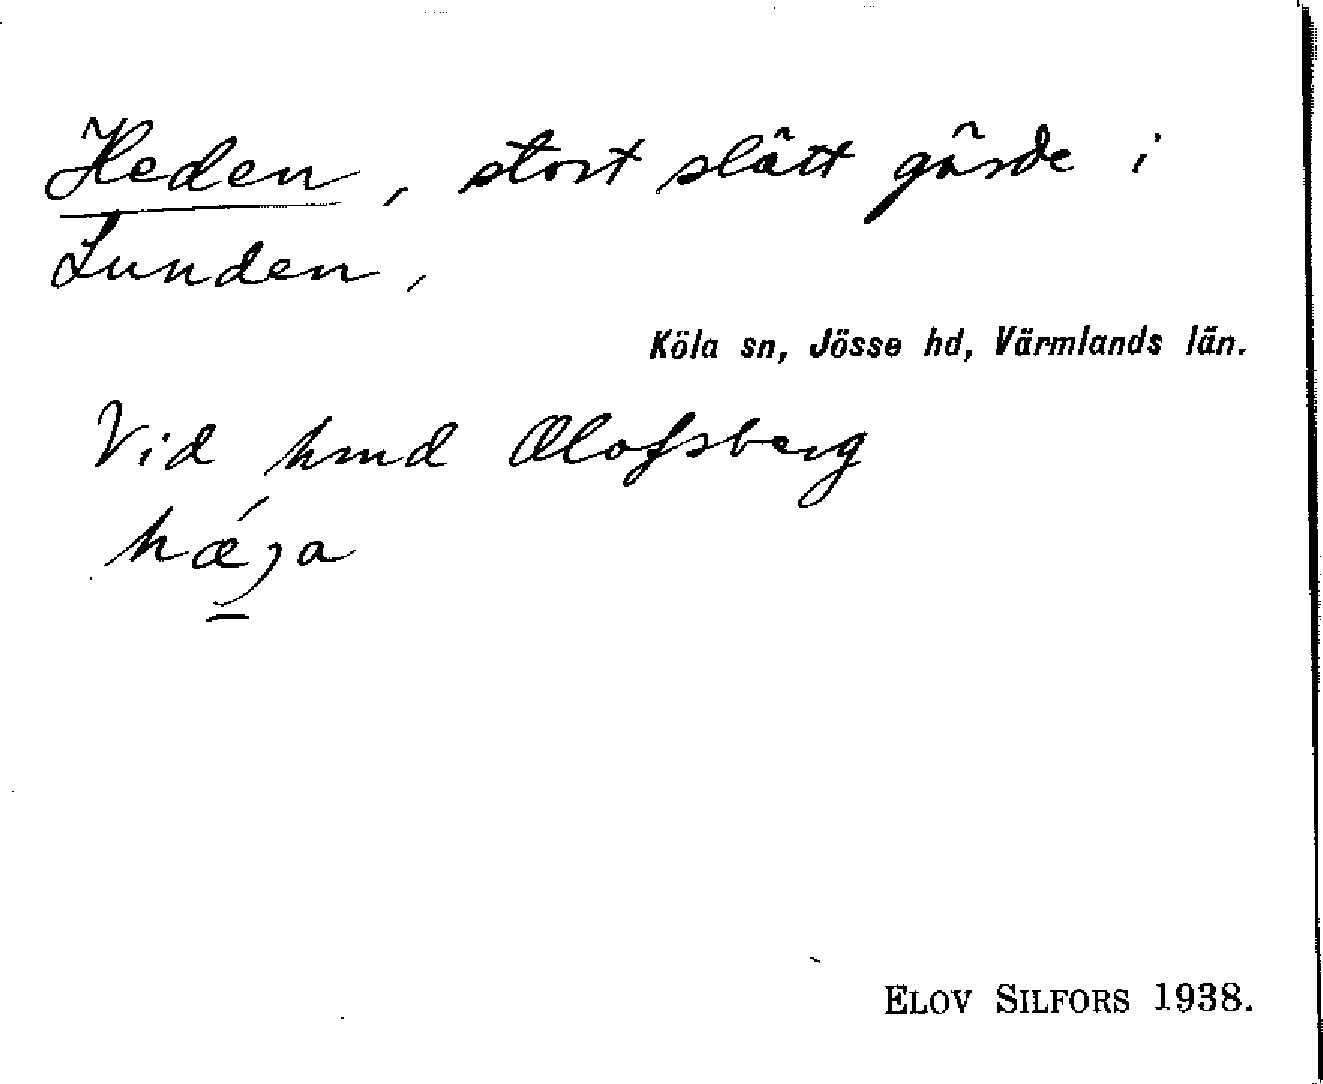 Heden, stort slätt gärde i
Lunden,
Köla sn, Jösse hd, Värmlands län.
Vid hmd Olofsberg
ELOV SILFORS 1938.